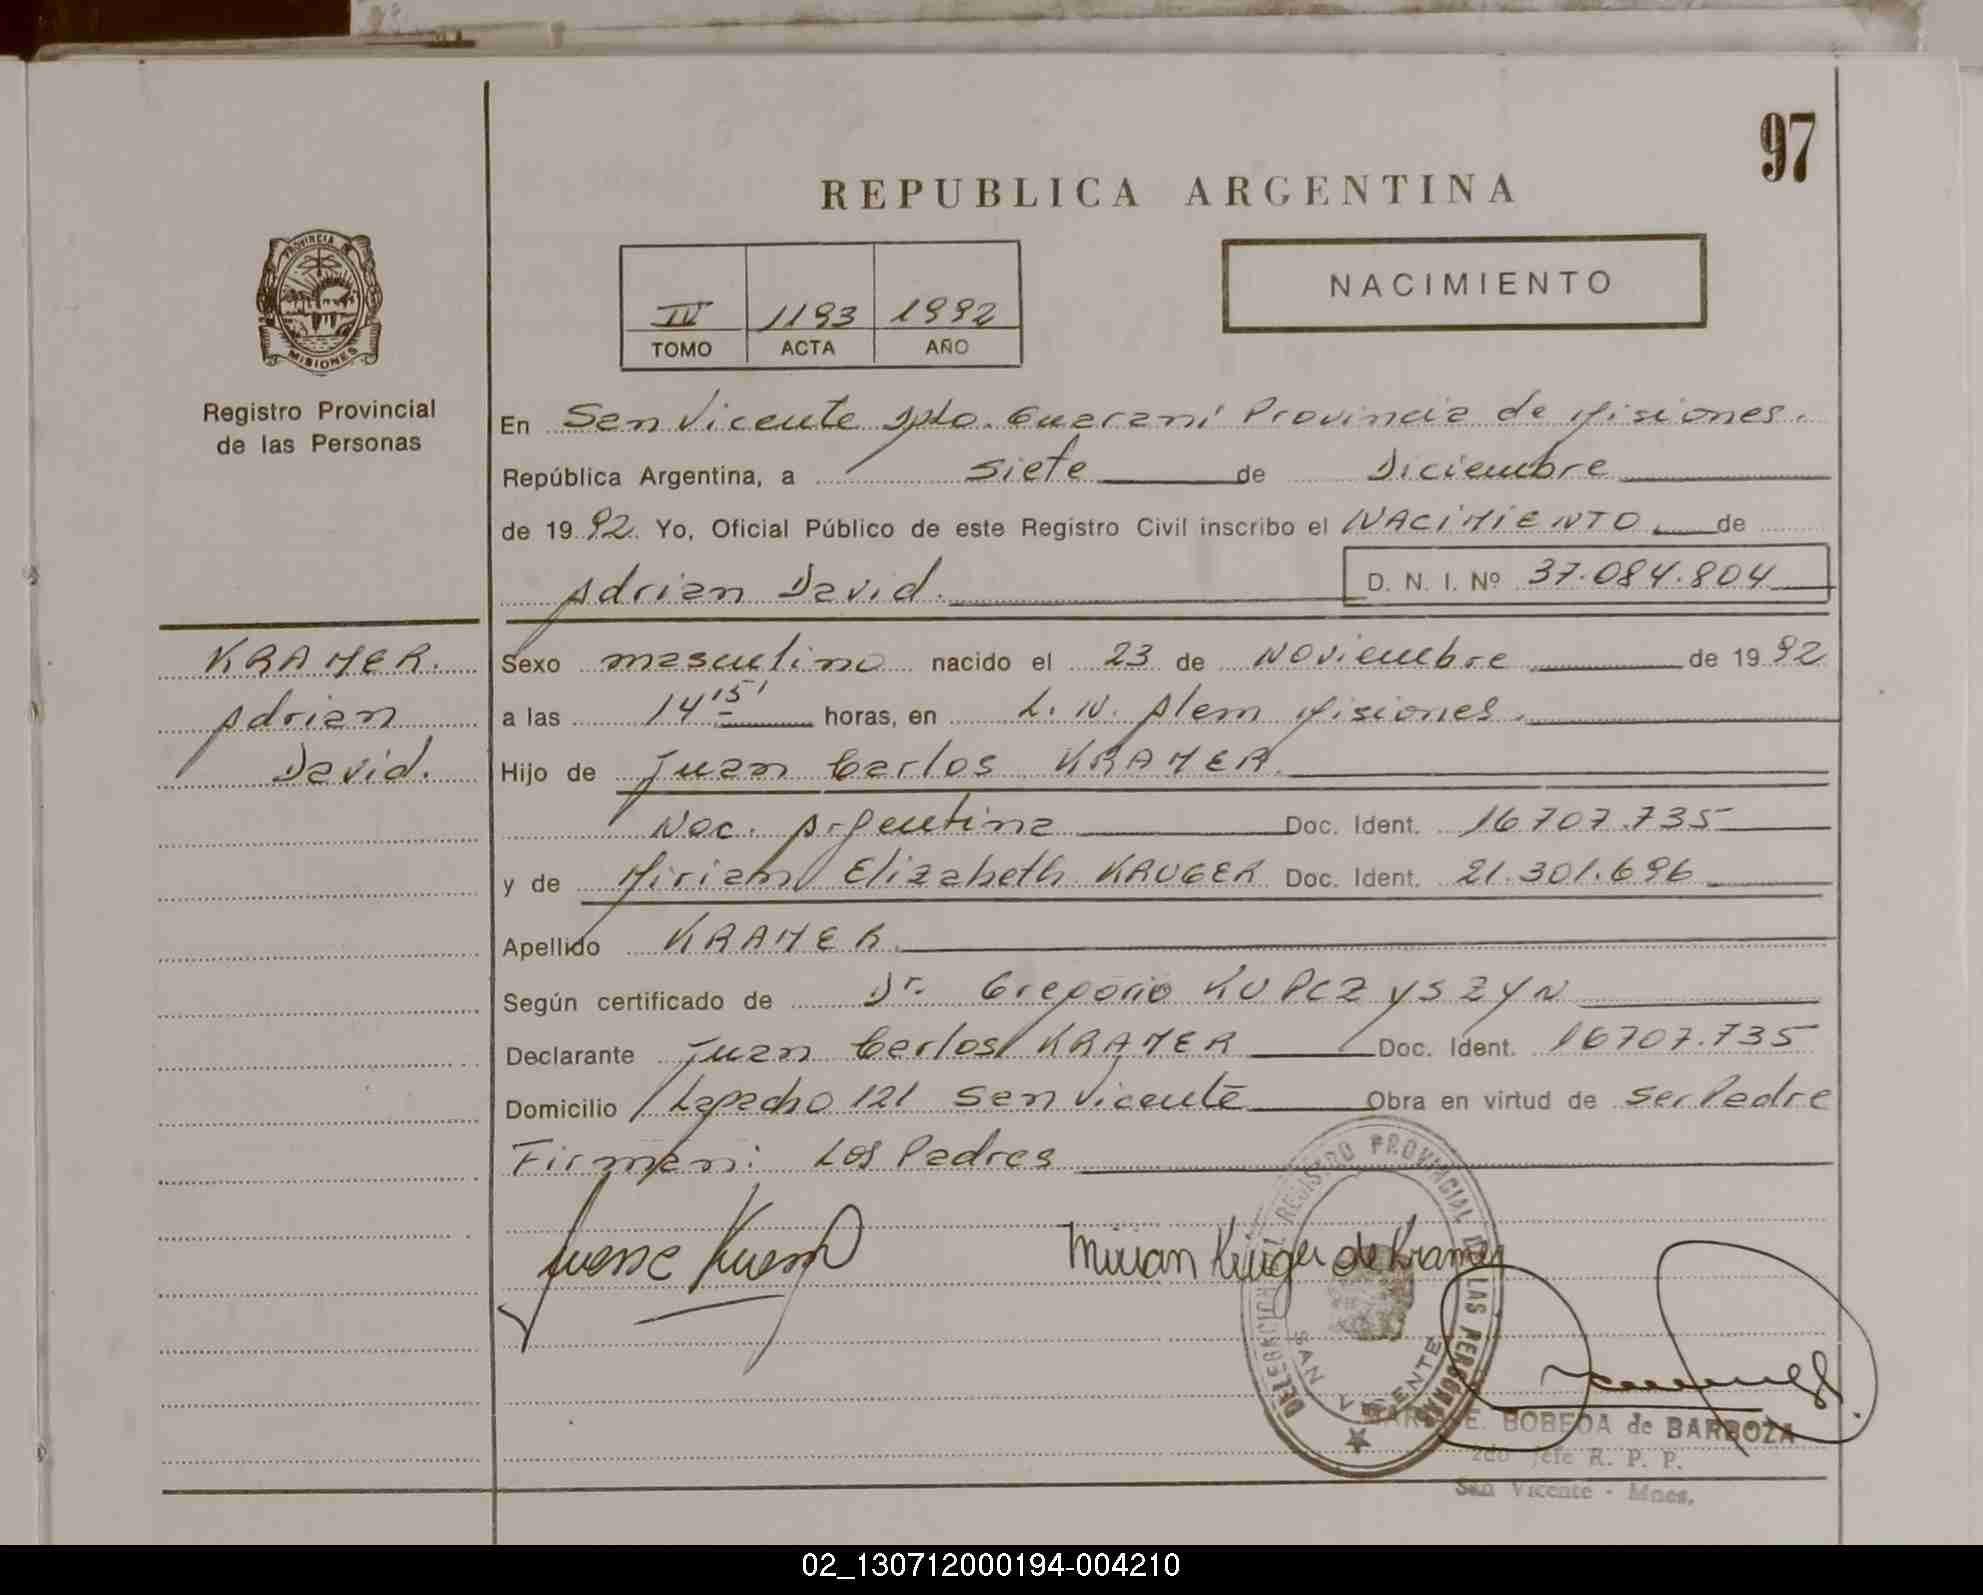 97
REPUBLICA ARGENTINA
PROVINCIA DE
MISIONES
Registro Provincial
de las Personas
IV 1193 1992
TOMO ACTA AÑO
NACIMIENTO
En San Vicente Dpto. Guaraní Provincia de Misiones.
República Argentina, a siete de Diciembre
de 19 92 Yo, Oficial Público de este Registro Civil inscribo el NACIMIENTO de
Adrian David. D. N. I. Nº 37.084.804
KRAMER.
Adrian
David.
Sexo masculino nacido el 23 de Noviembre de 19 92
a las 14 15' horas, en L. N. Alem Misiones.
Hijo de Juan Carlos KRAMER.
Nac. Argentina Doc. Ident. 16707.735
y de Miriam Elizabeth KRUGER Doc. Ident. 21.301.696
Apellido KRAMER.
Según certificado de Dr. Gregorio KUPCZYSZYN
Declarante Juan Carlos KRAMER Doc. Ident. 16707.735
Domicilio Lapacho 121 San Vicente Obra en virtud de ser Padre
Firman: Los Padres
Mirian Kruger de Kramer
DELEGACION REGISTRO PROVINCIAL DE LAS PERSONAS
SAN VICENTE
MARIA E. BOBEDA de BARBOZA
2do Jefe R. P. P.
San Vicente - Mnes.
02_130712000194-004210